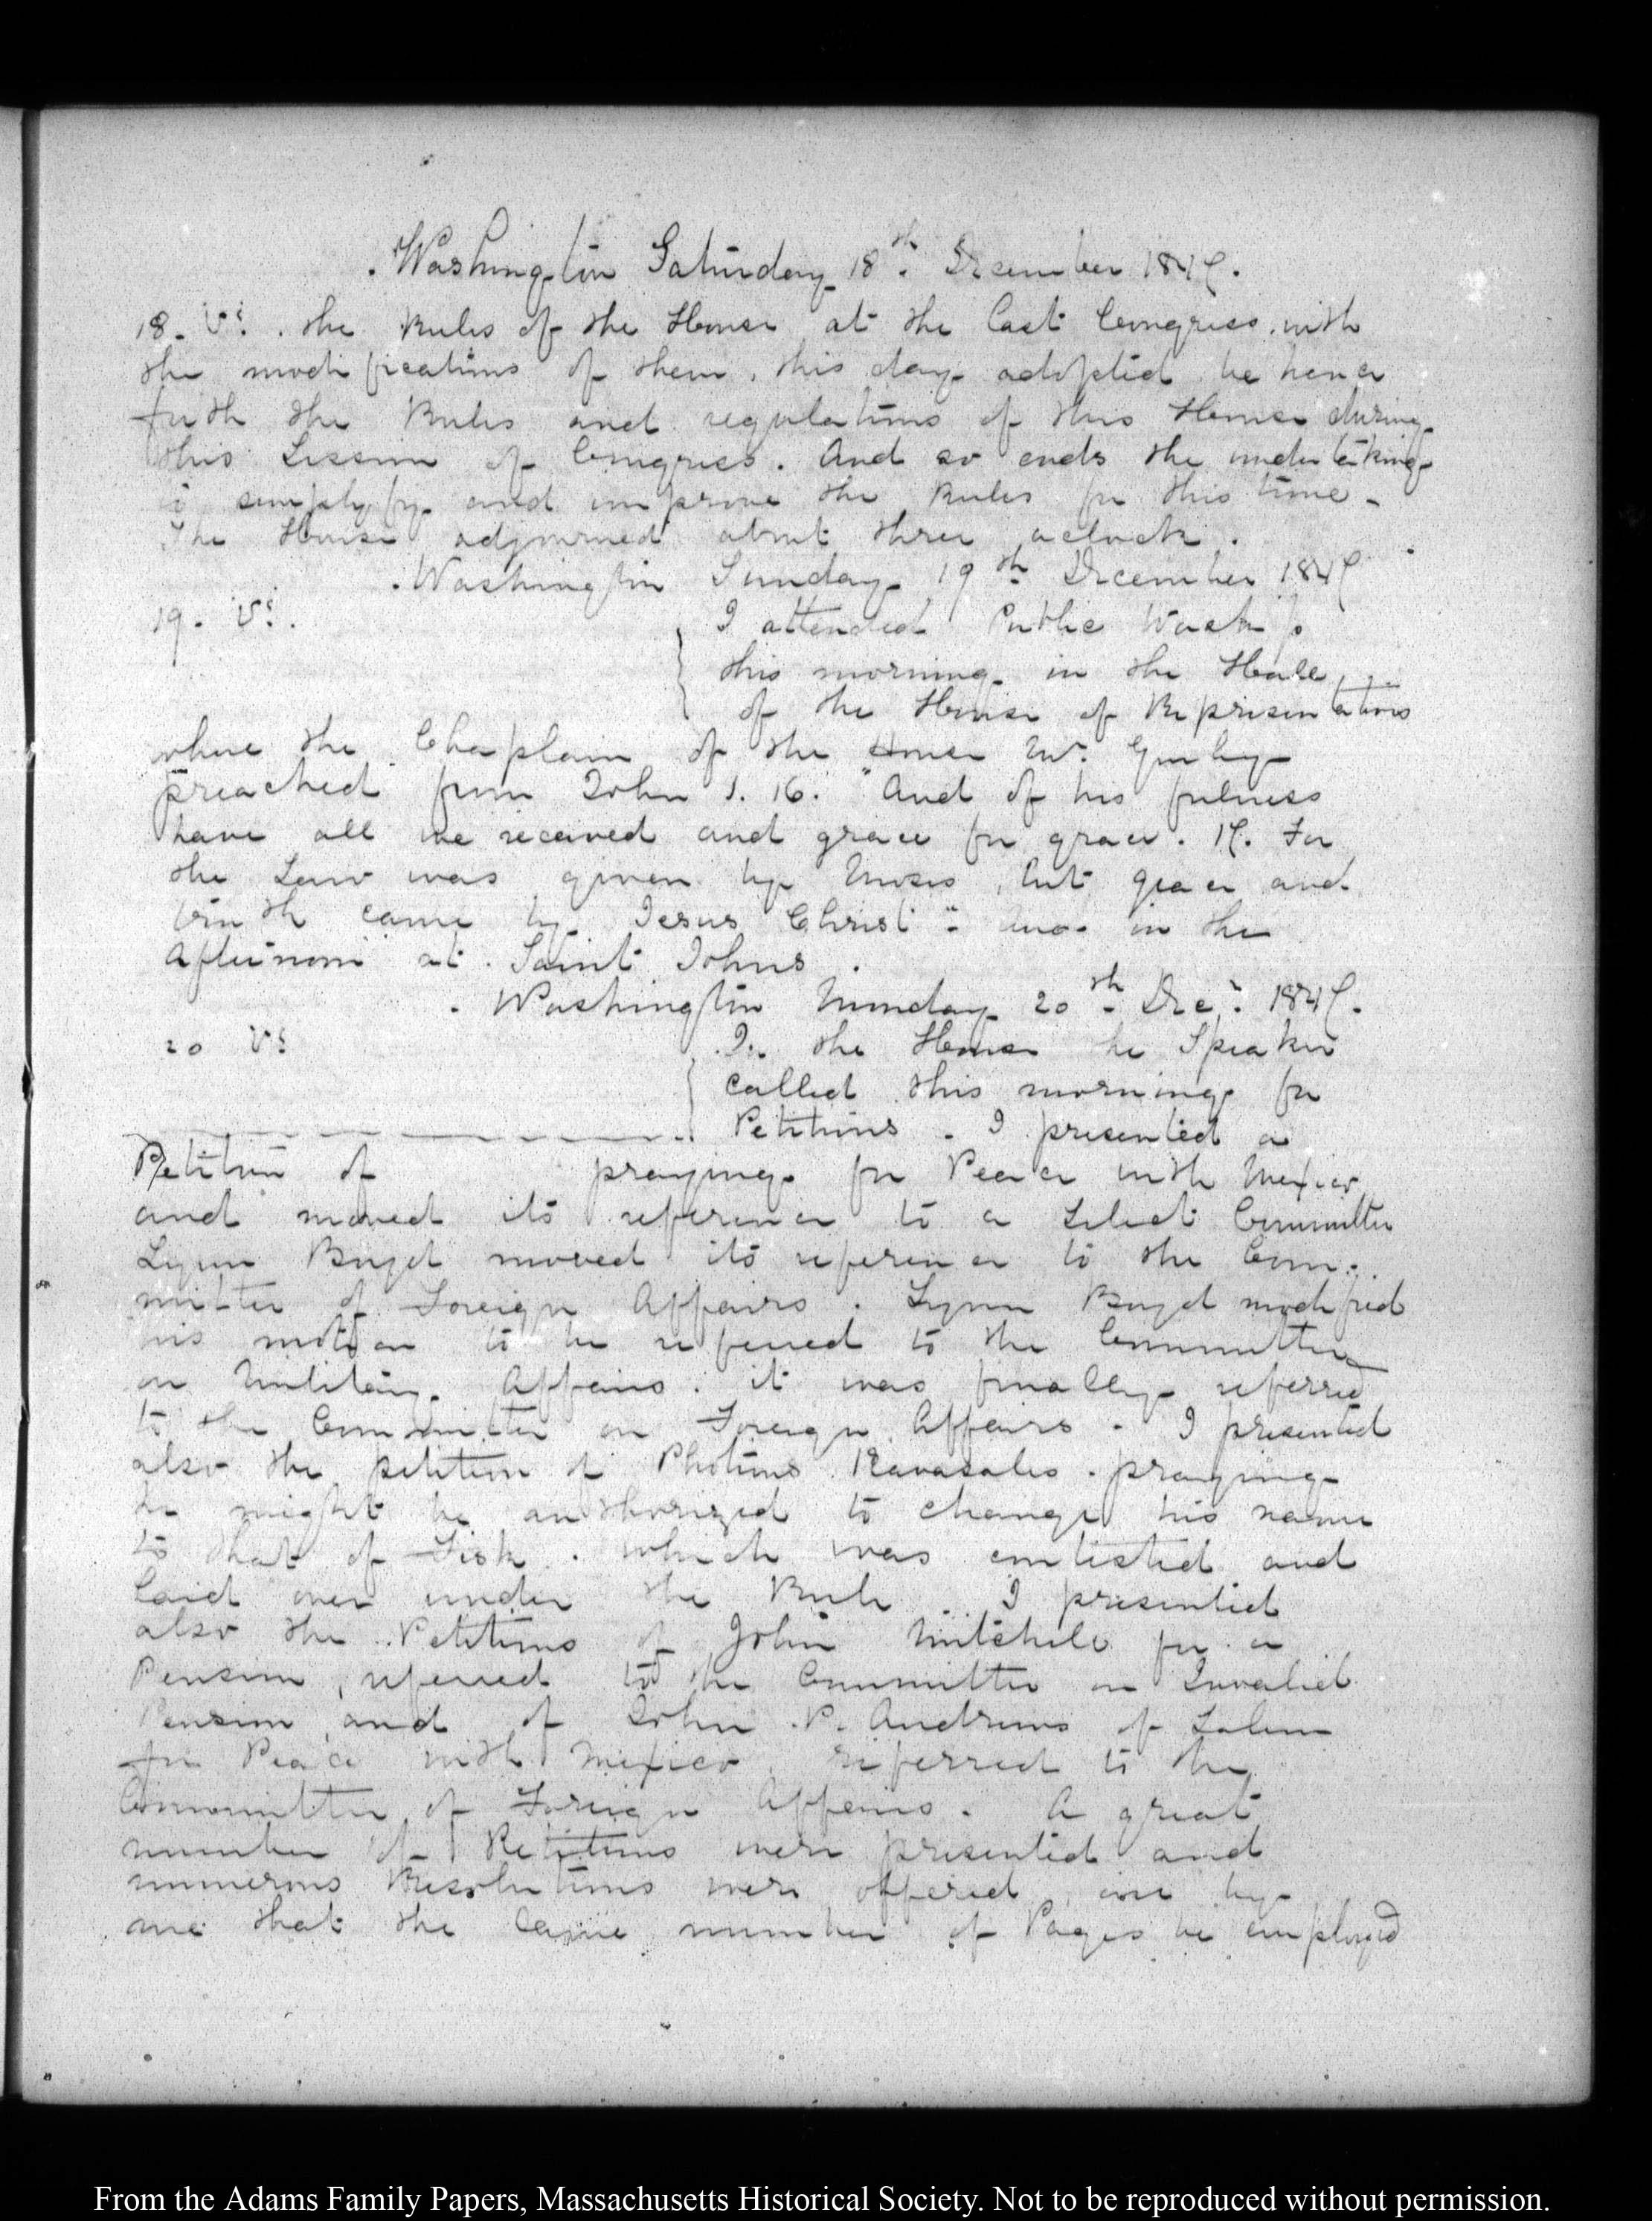 Washington Saturday 18th. December 1847.
18. V: the Rules of the House at the last Congress with
the modifications of them, this day adopted be hence
forth the Rules and regulations of this House during
this Session of Congress. And so ends the undertaking
to simplify and improve the Rules for this time –
The House adjourned about three o'clock.
Washington Sunday 19th December 1847
19. V:.
I attended Public Worship
this morning in the Hall
of the House of Representatives
where the Chaplain of the House Mr. Gurley
preached from John 1. 16. "And of his fulness
have all we received and grace for grace. 17. For
the Law was given by Moses, but grace and
truth came by Jesus Christ" – And in the
Afternoon at Saint Johns.
Washington Monday 20th. Dec: 1847.
20 V:
In the House the Speaker
called this morning for
Petitions – I presented a
Petition of praying for Peace with Mexico
and moved its reference to a Select Committee
Lynn Boyd moved its reference to the Com-
mittee of Foreign Affairs. Lynn Boyd modified
his motion to be referred to the Committee
on Military Affairs. it was finally referred
to the Committee on Foreign Affairs – I presented
also the petition of Photius Kavasales praying
he might be authorized to change his name
to that of Fisk. which was entitled and
laid over under the Rule. I presented
also the Petitions of John Mitchell for a
Pension, referred to the Committee on Invalid
Pension, and of John P. Andrews of Salem
for Peace with Mexico referred to the
Committee of Foreign Affairs. A great
number of Petitions were presented and
numerous Resolutions were offered, one by
me that the same number of Pages be employed
From the Adams Family Papers, Massachusetts Historical Society. Not to be reproduced without permission.